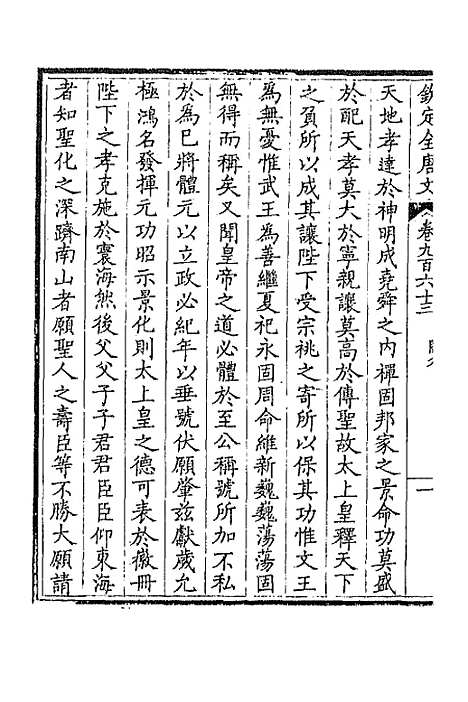 欽定全唐文 卷九百六十三 闕名 一
天地孝達於神明成堯舜之內禪固邦家之景命功莫盛
於配天孝莫大於寧親讓莫高於傳聖故太上皇釋天下
之負所以成其讓陛下受宗祧之寄所以保其功惟文王
為無憂惟武王為善繼夏祀永固周命維新巍巍蕩蕩固
無得而稱矣又聞皇帝之道必體於至公稱號所加不私
於為已將體元以立政必紀年以垂號伏願肇茲獻歲允
極鴻名發揮元功昭示景化則太上皇之德可表於徽冊
陛下之孝克施於寰海然後父父子子君君臣臣仰東海
者知聖化之深躋南山者願聖人之壽臣等不勝大願請